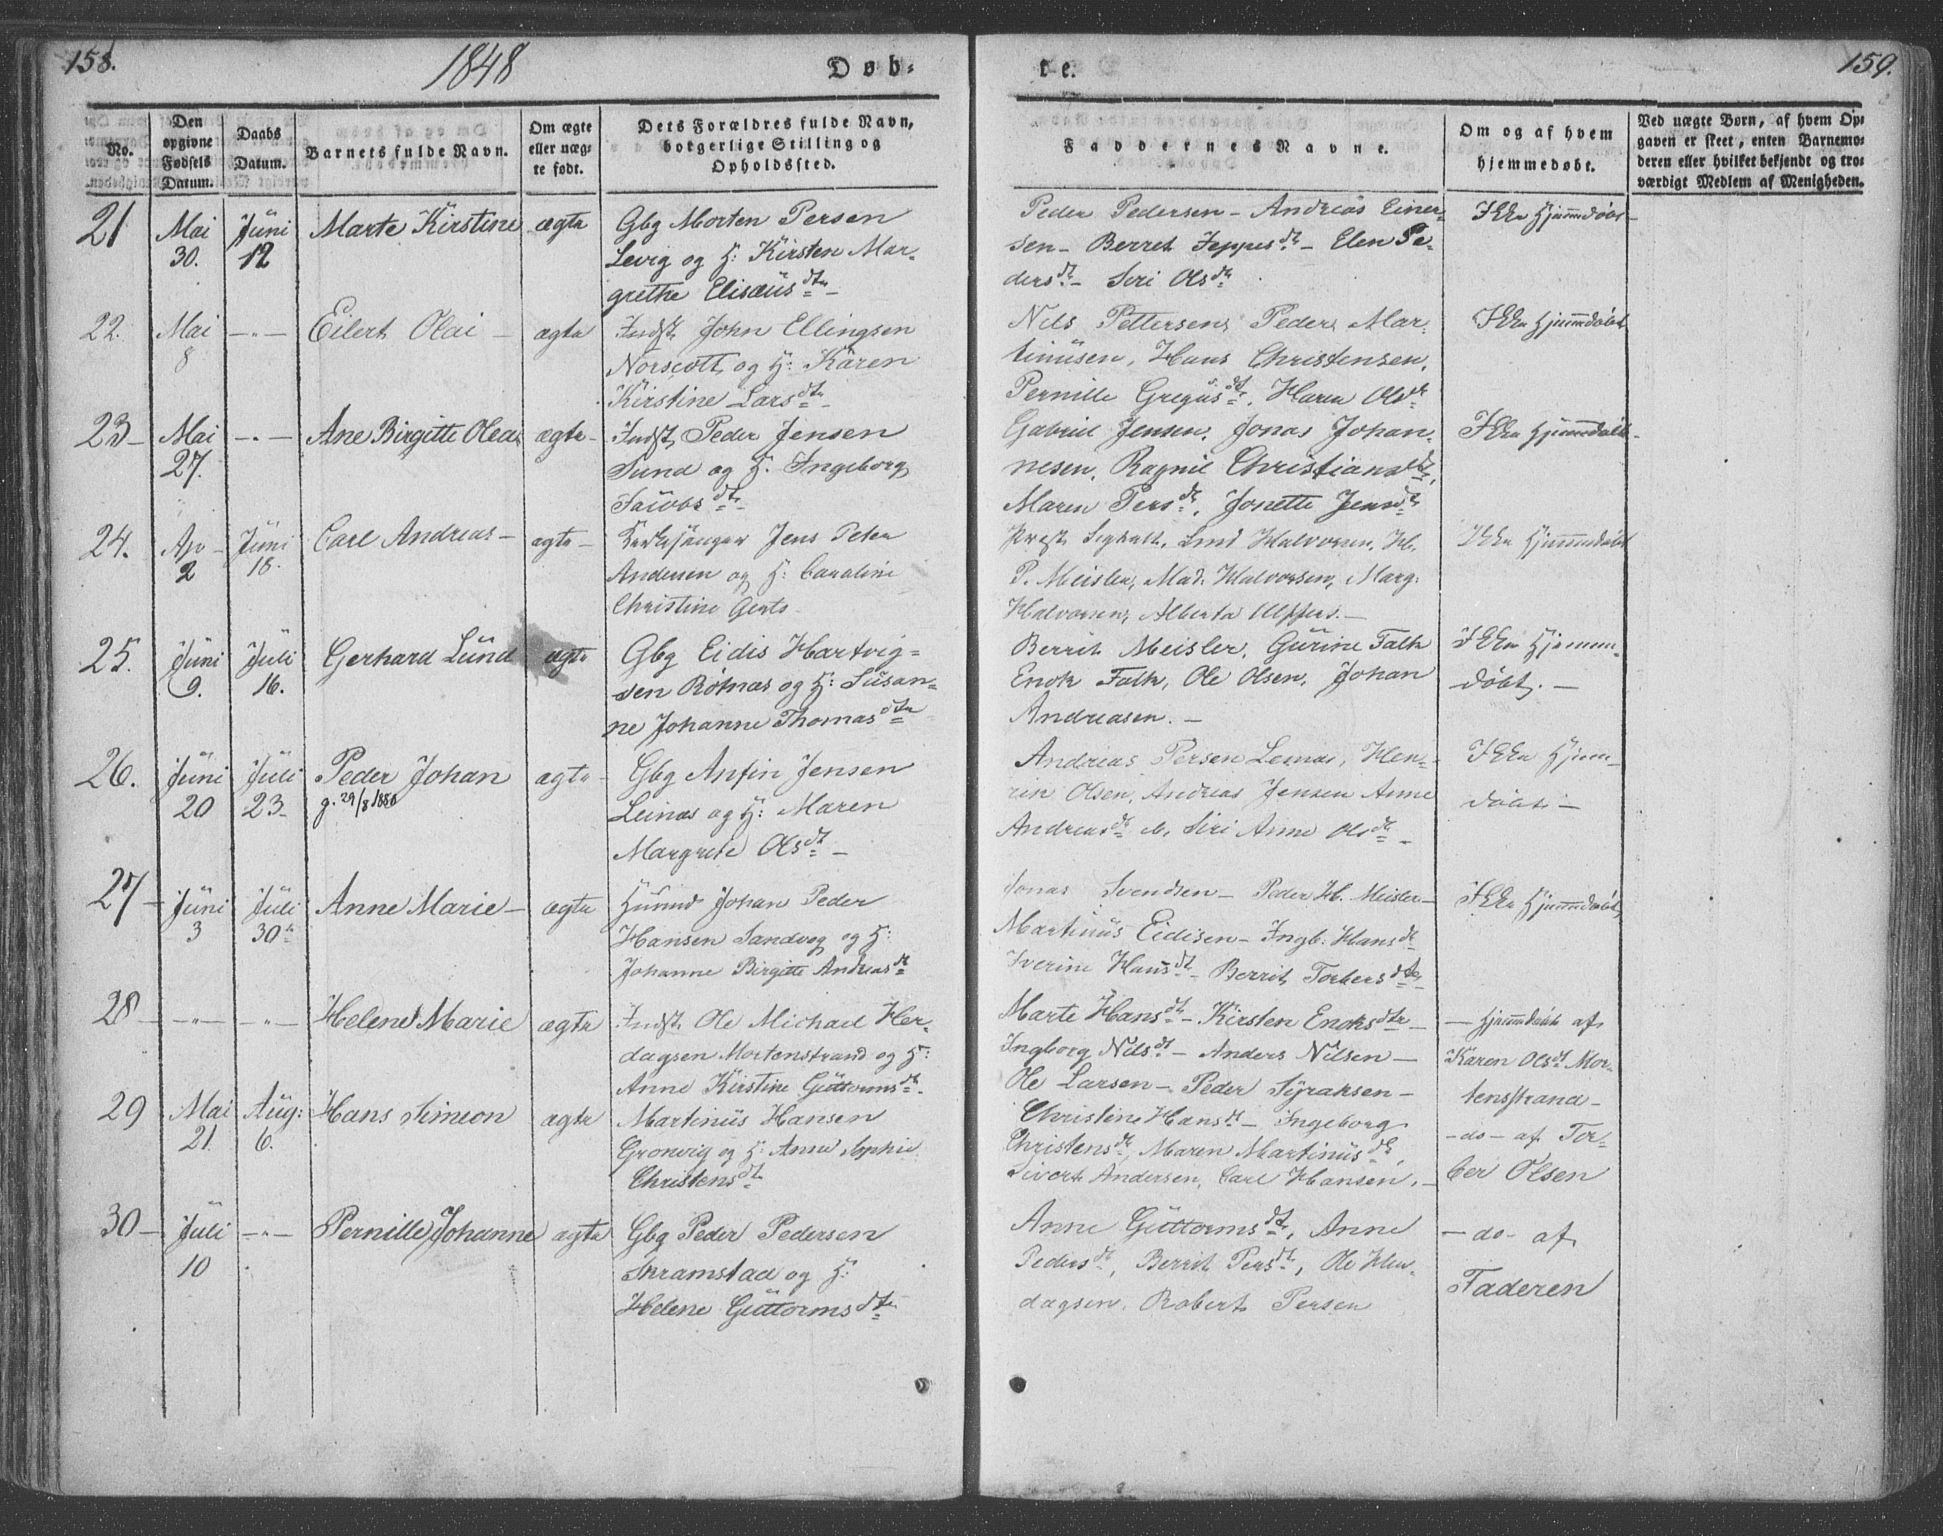 158.
1848
Døb-
te.
159.
No.
Den opgivne Fødsels Datum.
Daabs Datum.
Barnets fulde Navn.
Om ægte eller uægte født.
Dets Forældres fulde Navn, borgerlige Stilling og Opholdssted.
Faddernes Navne.
Om og af hvem hjemmedøbt.
Ved uægte Børn, af hvem Opgaven er skeet, enten Barnemoderen eller hvilket bekjendt og troværdigt Medlem af Menigheden.
21 Mai 30. Juni 12 Marte Kirstine ægte
Gbg Morten Persen
Levig og H: Kirsten Mar-
grethe Elisæusdtr
Peder Pedersen - Andreas Einer-
sen - Berret Jeppesdtr - Elen Pe-
dersdtr - Siri Olsdtr
Ikke Hjemmdøbt
22. Mai 8 -"- Eilert Olai - ægte
Indst. John Ellingsen
Norscott og H: Karen
Kirstine Larsdtr
Nils Pettersen, Peder Mar-
tinusen, Hans Christensen,
Pernille Gregusdt, Maren Olsdtr
Ikke Hjemmdøbt
23 - Mai 27. -"- Ane Birgitte Olea ægte -
Indst. Peder Jensen
Sund og H. Ingeborg
Jacobsdtr
Gabriel Jensen, Jonas Johan-
nesen, Ragnil Christiansdtr,
Maren Persdtr, Jonette Jensdtr
Ikke Hjemmdøbt
24. Ap 2 Juni 18. Carl Andreas - ægte -
Kirkesanger Jens Peter
Andersen og H: Caroline
Christine Gerts
Halvorsen, H.
P. Meisler, Mad. Halvorsen, Marg.
Halvorsen, Alberta
Ikke Hjemmdøbt
25. Juni 9. Juli 16. Gerhard Lund ægte
Gbg Eidis Hartvig=
sen Røtnæs og H: Susan=
ne Johanne Thomasdtr
Berrit Meisler, Gurine Falk
Enok Falk, Ole Olsen, Johan
Andreasen. -
Ikke Hjemm-
døbt. -
26. Juni 20 Juli 23 Peder Johan ægte -
g. 29/8 1880
Gbg Anfin Jensen
Leinæs og H: Maren
Margrete Olsdt -
Andreas Persen Leinæs, Hen-
rik Olsen, Andreas Jensen Anne
Andreasdt Siri Anne Olsdtr -
Ikke Hjem-
døbt -
27 - Juni 3 Juli 30te Anne Marie - ægte
Husmd Johan Peder
Hansen Sandvog og H:
Johanne Birgitte Andreasdt
Jonas Svendsen - Peder H. Meisler -
Martinus Eidisen - Ingb: Hansdt
Iverine Hansdt - Berrit Torbersdtr
Ikke Hjemmdøbt
28 - -"- -"- Helene Marie ægte
Indst. Ole Michael Her-
dagsen Mortenstrand og H:
Anne Kirstine Guttormsdt.
Marte Hansdt - Kirsten Enoksdtr -
Ingborg Nilsdt - Anders Nilsen -
Ole Larsen - Peder Syraksen -
- Hjemmdøbt af
Karen Olsdt Mor-
tensstrand -
29 Mai 21 Aug: 6. Hans Simeon ægte
Martinus Hansen
Gronvig og H: Anne Sophie
Christensdt
Christine Hansdt - Ingeborg
Christensdt, Maren Martinusdt,
Sivert Andersen, Carl Hansen. -
- do - af Tor-
ber Olsen
30 - Juli 10 -"- Pernille Johanne ægte
Gbg Peder Pedersen
Skramstad og H:
Helene Guttormsdtr
Anne Guttormsdt, Anne
Pedersdt, Berrit Persdt, Ole Hen-
dagsen, Robert Persen
- do - af
Faderen